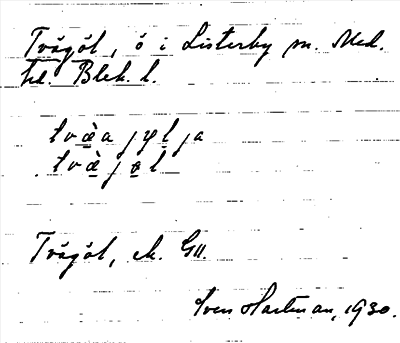 Tvägöl, ö i Listerby sn. Med.
hd. Blek. l.
tvæ̀a jøl ja
tvæ̀ jøl
Tvägöl,
Sven Hartman, 1930.